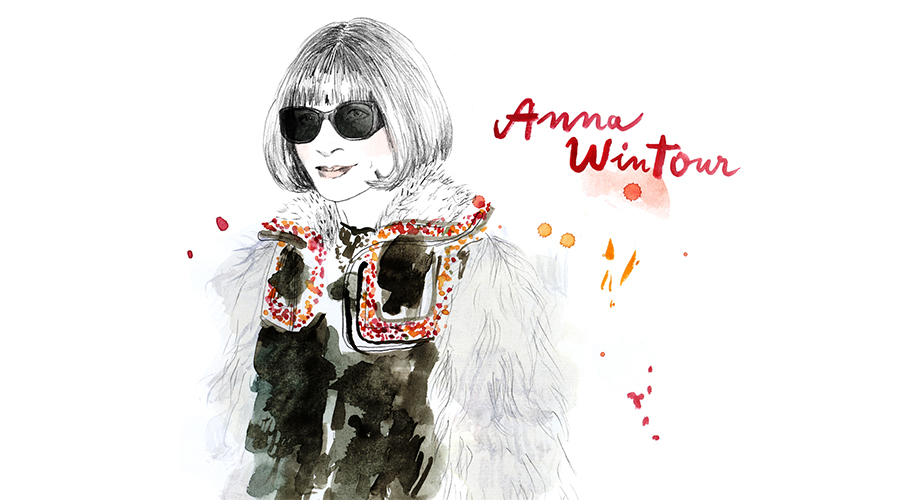 Anna
Wintour